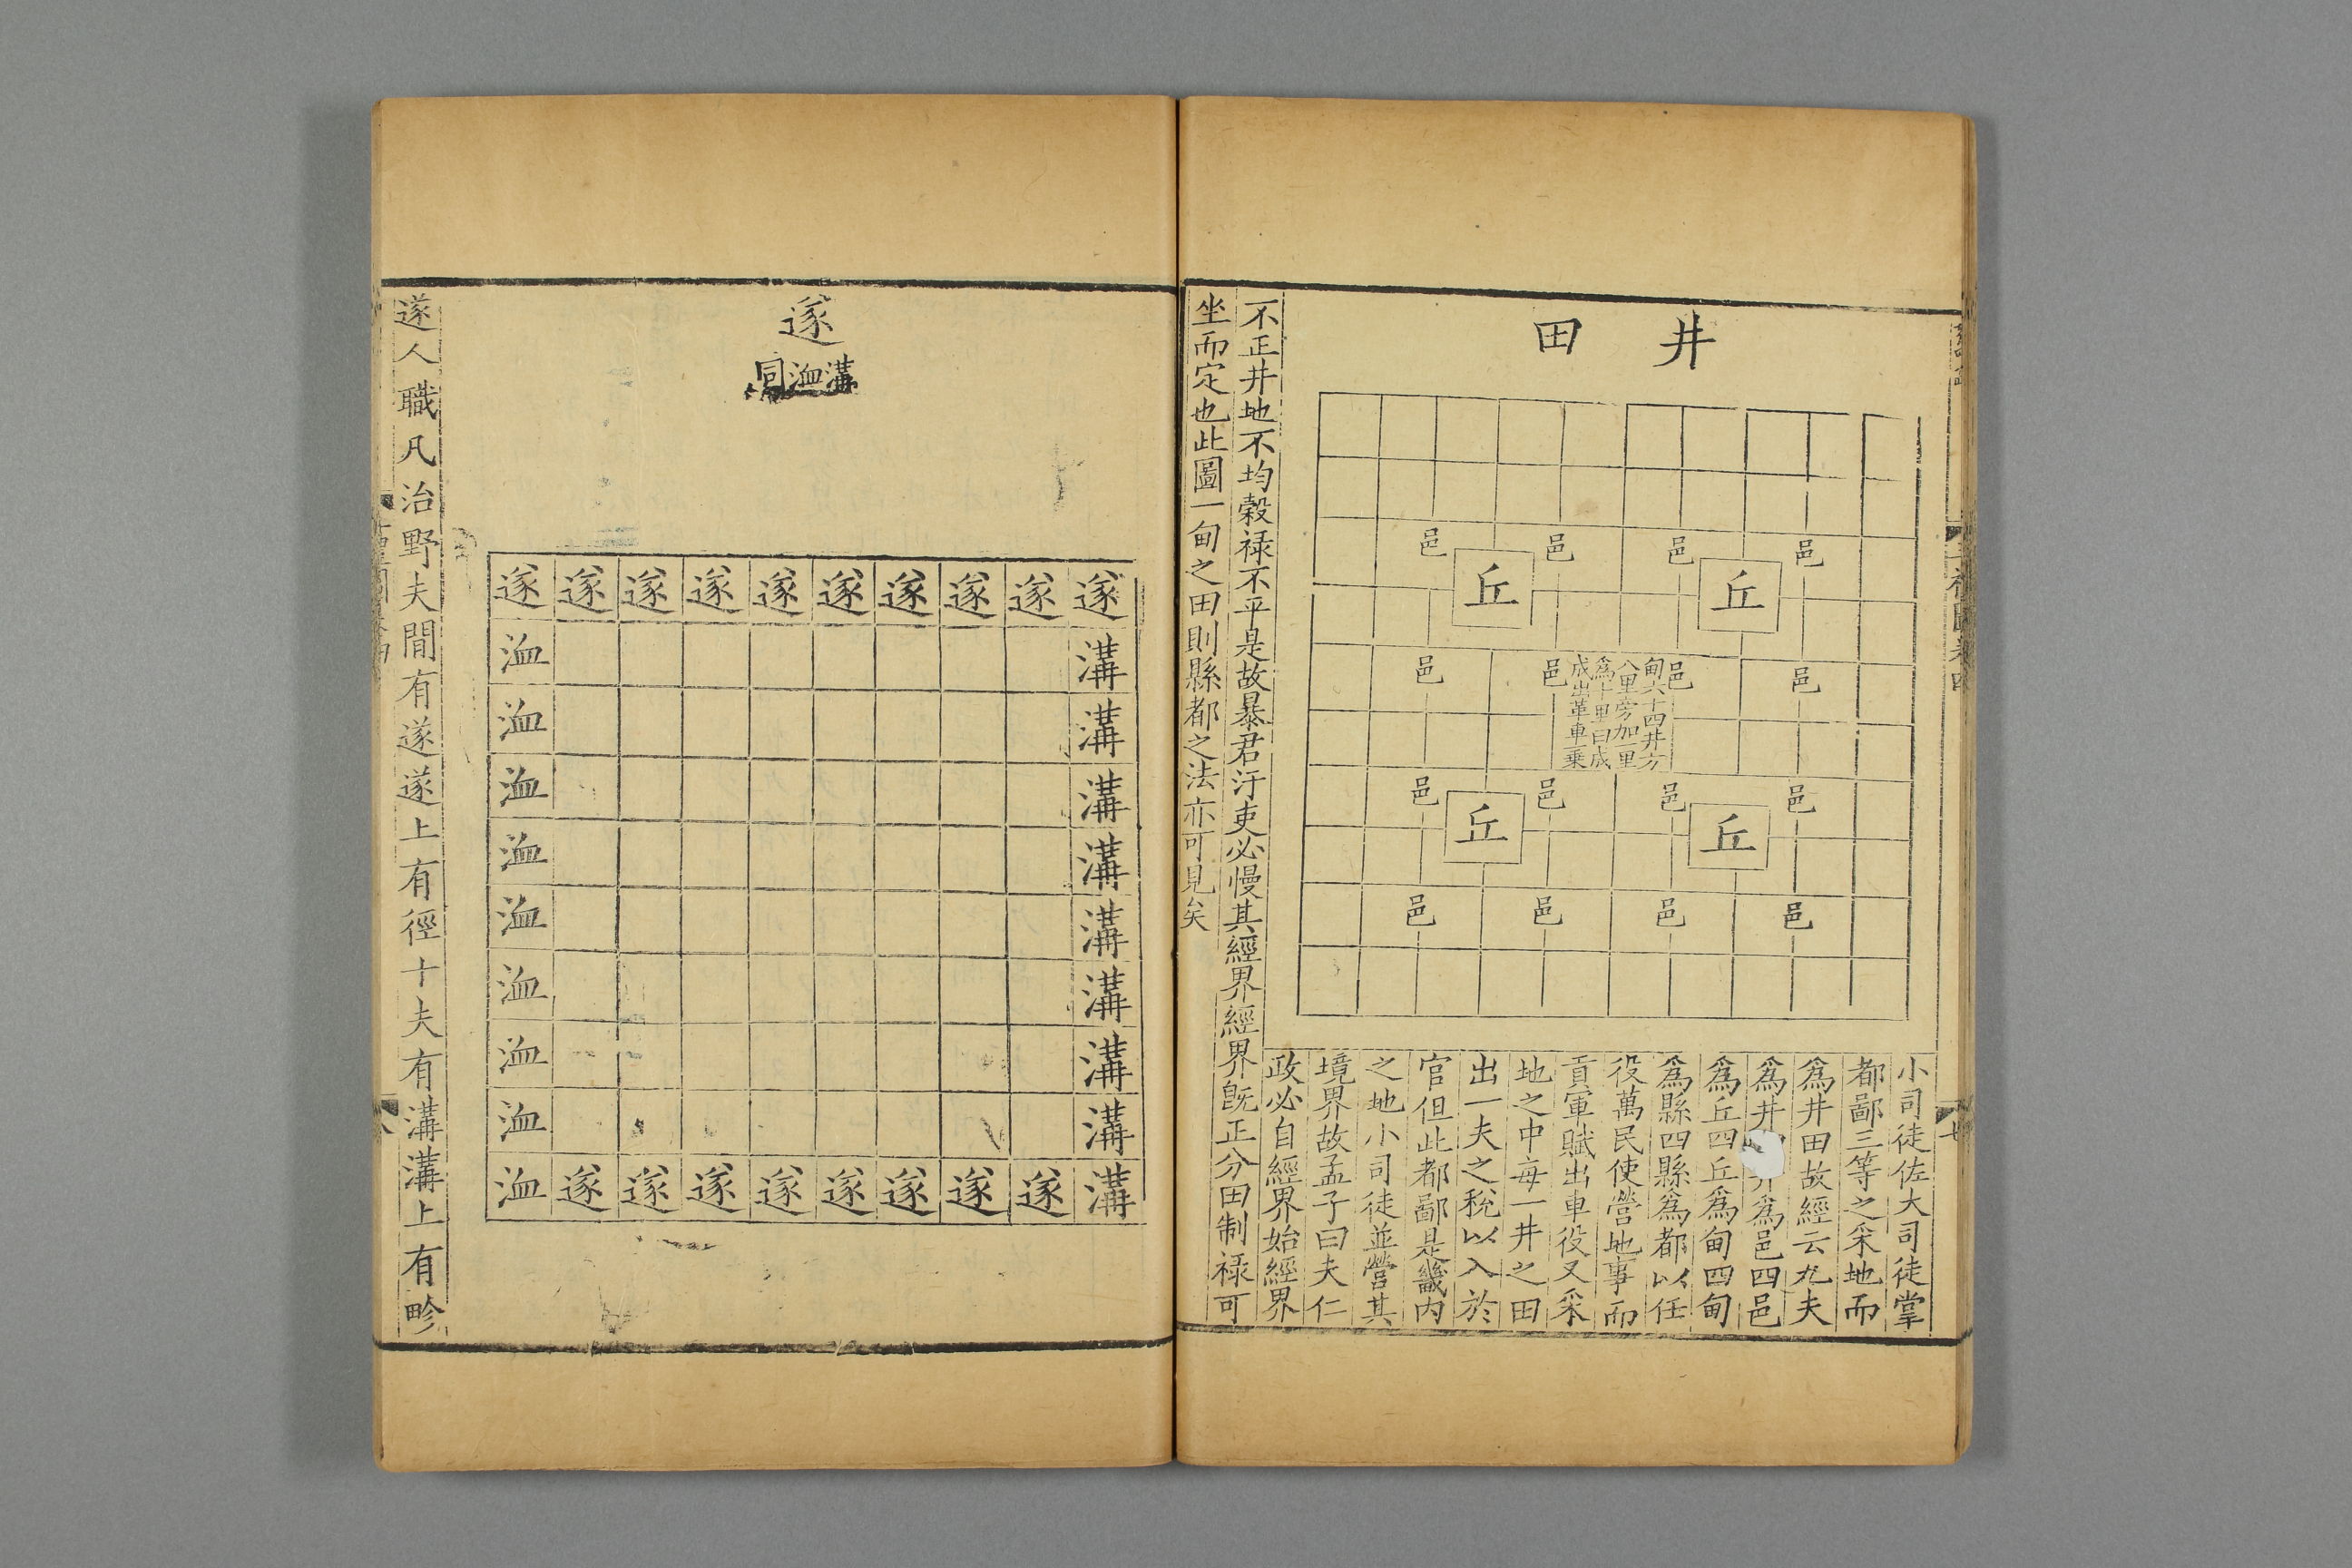 井田
邑邑邑邑
丘丘
邑邑邑邑
甸六十四井方
八里旁加一里
爲十里曰成
成出革車一乗
邑邑邑邑
丘丘
邑邑邑邑
小司徒佐大司徒掌
都鄙三等之采地而
爲井田故經云九夫
爲井 爲邑四邑
爲丘四丘爲甸四甸
爲縣四縣爲都以任
役萬民使營地事而
貢軍賦出車役又采
地之中每一井之田
出一夫之稅以入於
官但此都鄙是畿内
之地小司徒並營其
境界故孟子曰夫仁
政必自經界始經界
不正井地不均榖禄不平是故暴君汙吏必慢其經界經界既正分田制禄可
坐而定也此圖一甸之田則縣都之法亦可見矣
遂
溝洫同
遂遂遂遂遂遂遂遂遂遂
溝洫
溝洫
溝洫
溝洫
溝洫
溝洫
溝洫
溝洫
溝遂遂遂遂遂遂遂遂洫
遂人職凡治野夫間有遂遂上有徑十夫有溝溝上有畛